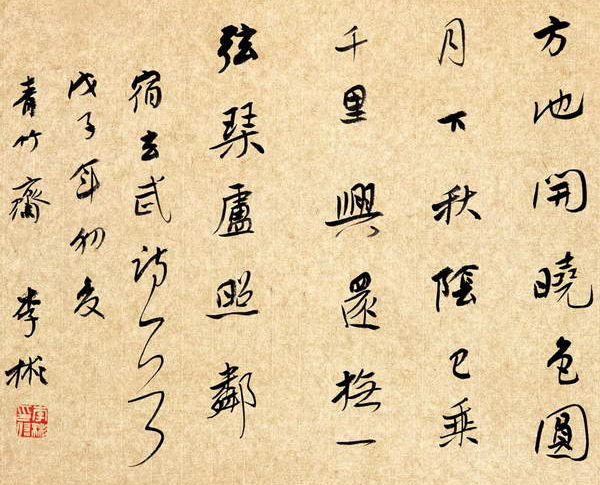 方池開曉色圓
月下秋陰已乘
千里興還撫一
弦琴盧照鄰
宿玄武詩一首
戊子年初夏
青竹齋 李彬